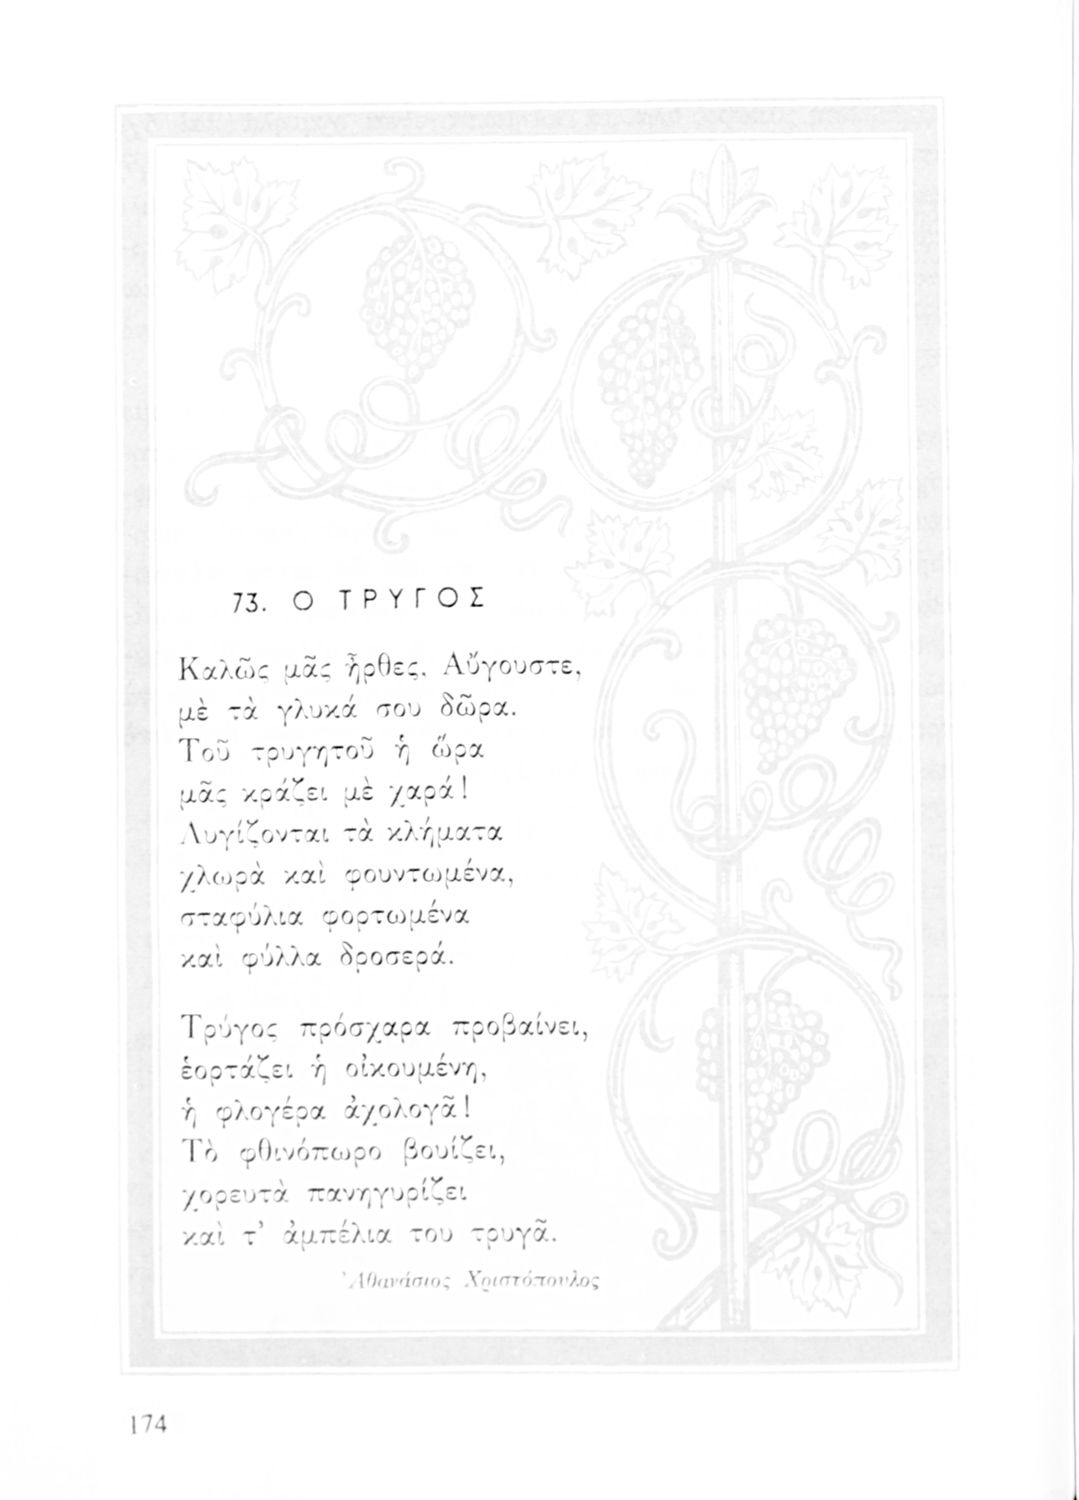 73. Ο ΤΡΥΓΟΣ
Καλῶς μᾶς ἦρθες, Αὔγουστε,
μὲ τὰ γλυκά σου δῶρα.
Τοῦ τρυγητοῦ ἡ ὥρα
μᾶς κράζει μὲ χαρά!
Λυγίζονται τὰ κλήματα
χλωρὰ καὶ φουντωμένα,
σταφύλια φορτωμένα
καὶ φύλλα δροσερά.
Τρύγος πρόσχαρα προβαίνει,
ἑορτάζει ἡ οἰκουμένη,
ἡ φλογέρα ἀχολογᾶ!
Τὸ φθινόπωρο βουίζει,
χορευτὰ πανηγυρίζει
καὶ τ’ ἀμπέλια του τρυγᾶ.
Ἀθανάσιος Χριστόπουλος
174